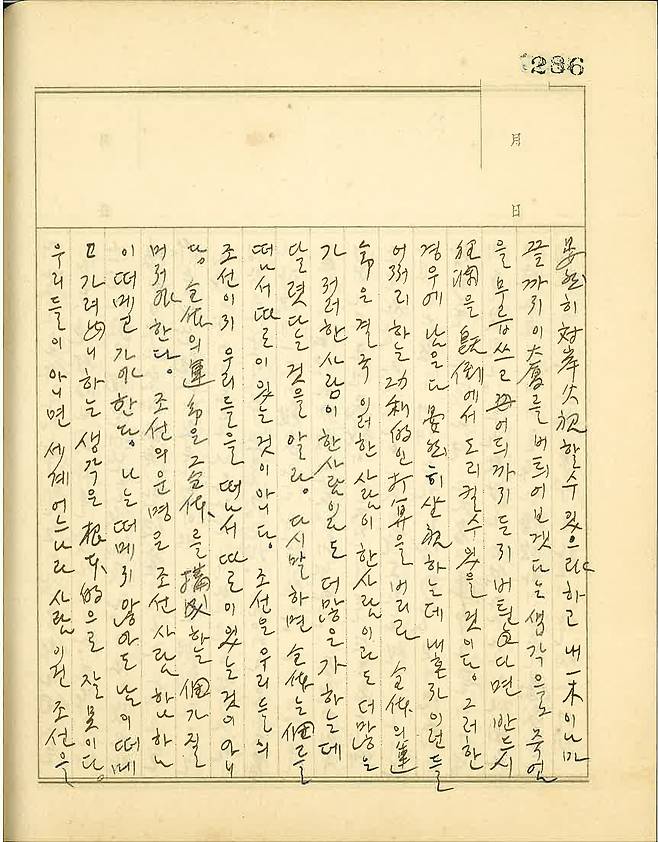 286
月
日
晏然히 対岸火視할 수 있으랴 하고 내 一木이나마
끝까지 이 大廈를 버틔어 보겟다는 생각으로 죽엄
을 무릅쓰고 어듸까지든지 버틘다면 반듯시
狂瀾을 旣倒에서 도리킬 수 있을 것이다. 그러한
경우에 남은 다 晏然히 坐視하는데 내 혼자 이런들
어쩌리 하는 功利的인 打算을 버리라 全体의 運
命은 결국 이러한 사람이 한 사람이라도 더 많은
가 저러한 사람이 한 사람이라도 더 많은가 하는데
달렷다는 것을 알라. 다시 말하면 全体는 個를
떠나서 따로이 있는 것이 아니다. 조선은 우리들의
조선이지 우리들을 떠나서 따로이 있는 것이 아니
다. 全体의 運命은 그 全体를 構成하는 個가 질
머저야 한다. 조선의 운명은 조선사람 하나하나
이 떠메고 가야 한다. 나는 떠메지 않아도 남이 떠메
고 가려니 하는 생각은 根本的으로 잘못이다.
우리들이 아니면 세계 어느 나라 사람이 조선을